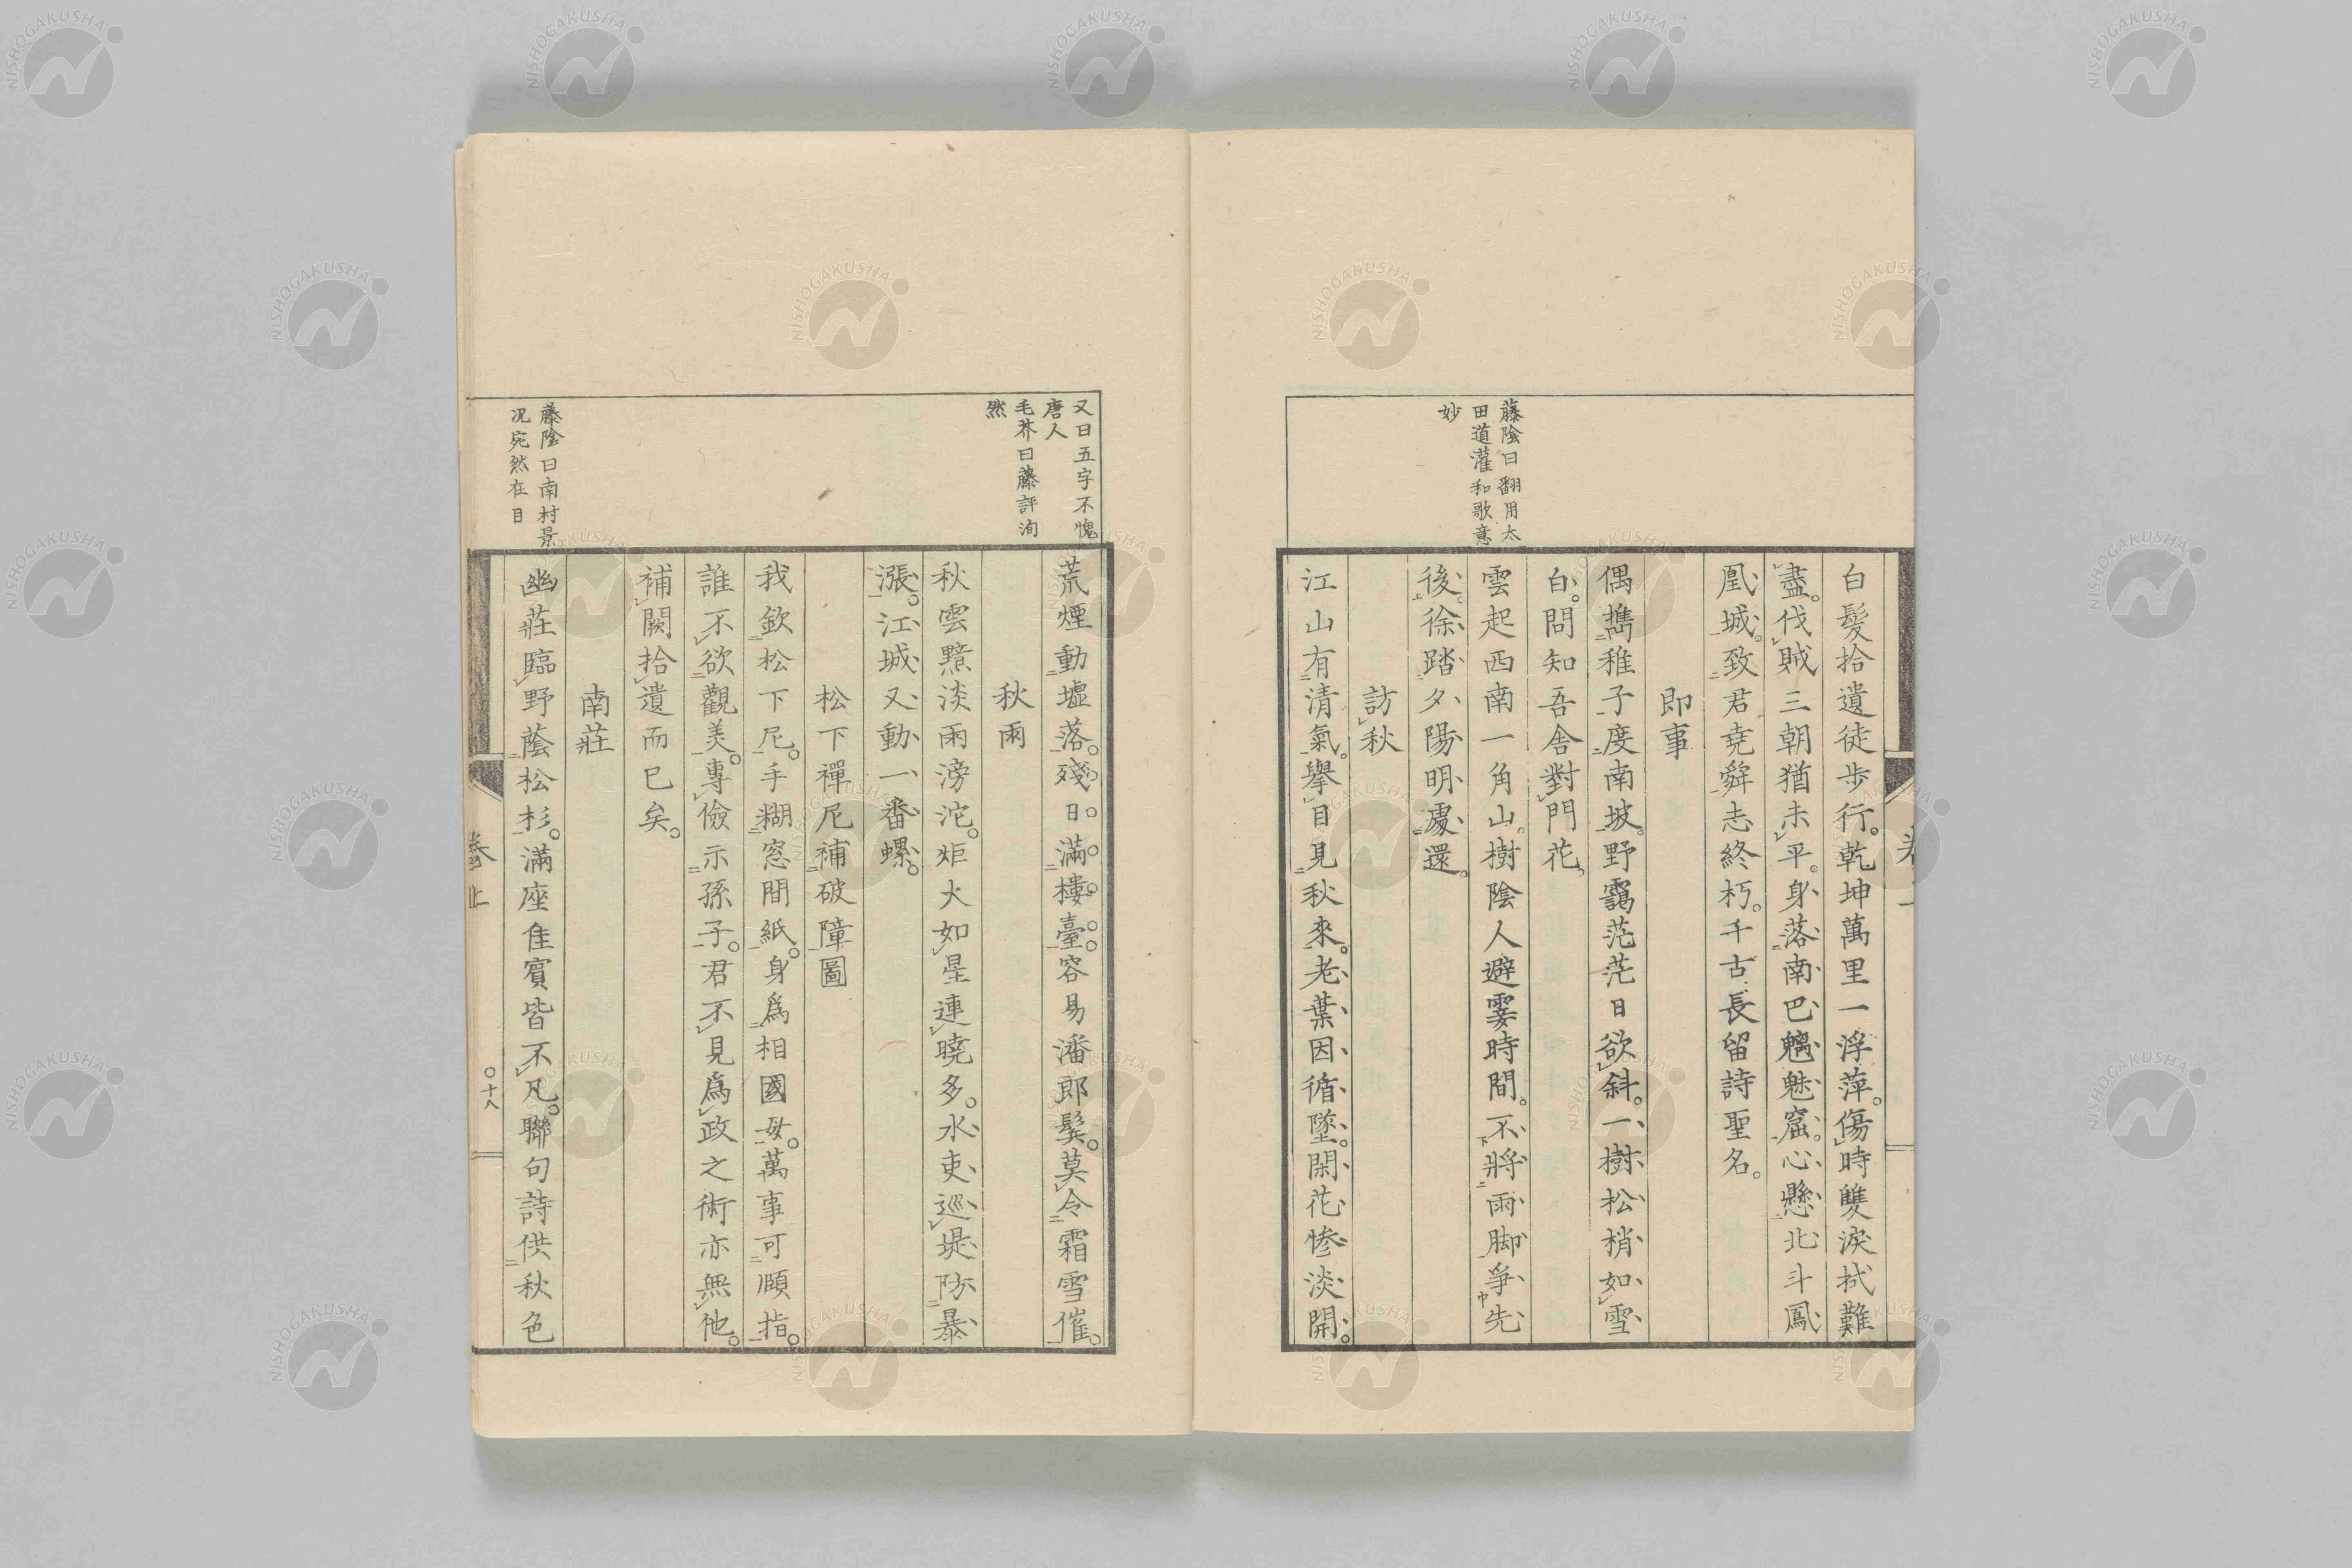 藤陰曰翻用太
田道灌和歌意
妙
白髮拾遺徒步行。乾坤萬里一浮萍。傷時雙淚拭難
盡。伐賊三朝猶未平。身落南巴魑魅窟。心懸北斗鳳
凰城。致君堯舜志終朽。千古長留詩聖名。
即事
偶携稚子度南坡。野靄茫茫日欲斜。一樹松梢如雪
白。問知吾舍對門花。
雲起西南一角山。樹陰人避霎時間。不將雨脚爭先
後。徐踏夕陽明處還。
訪秋
江山有清氣。擧目見秋來。老葉因循墜。閑花慘淡開。
又曰五字不愧
唐人
毛芥曰藤評洵
然
藤陰曰南村景
况宛然在目
荒煙動墟落。殘日滿樓臺。容易潘郎鬂。莫令霜雪催。
秋雨
秋雲黯淡雨滂沱。炬火如星連曉多。水吏巡堤防暴
漲。江城又動一番螺。
松下禪尼補破障圖
我欽松下尼。手糊窓間紙。身爲相國母。萬事可頤指。
誰不欲觀美。專儉示孫子。君不見爲政之術亦無他。
補闕拾遺而已矣。
南莊
幽莊臨野蔭松杉。滿座佳賓皆不凡。聯句詩供秋色
卷上
〇十八